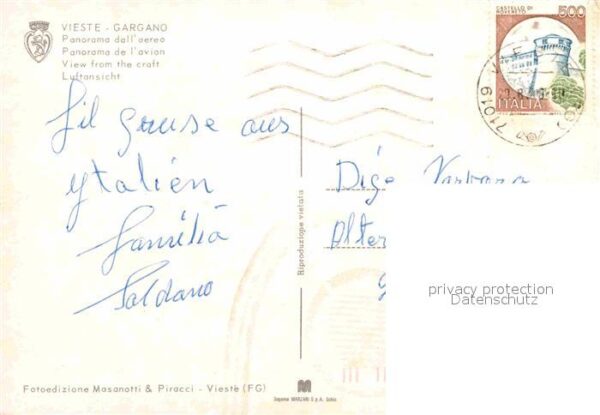 VIESTE - GARGANO
Panorama dall'aereo
Panorama de l'avion
View from the craft
Luftansicht
CASTELLO DI
ROVERETO
500
ITALIA
71019
fil gruse aus
ytalien
familia
Saldano
Riproduzione vietata
Alter
privacy protection
Datenschutz
Fotoedizione Masanotti & Piracci - Vieste (FG)
M